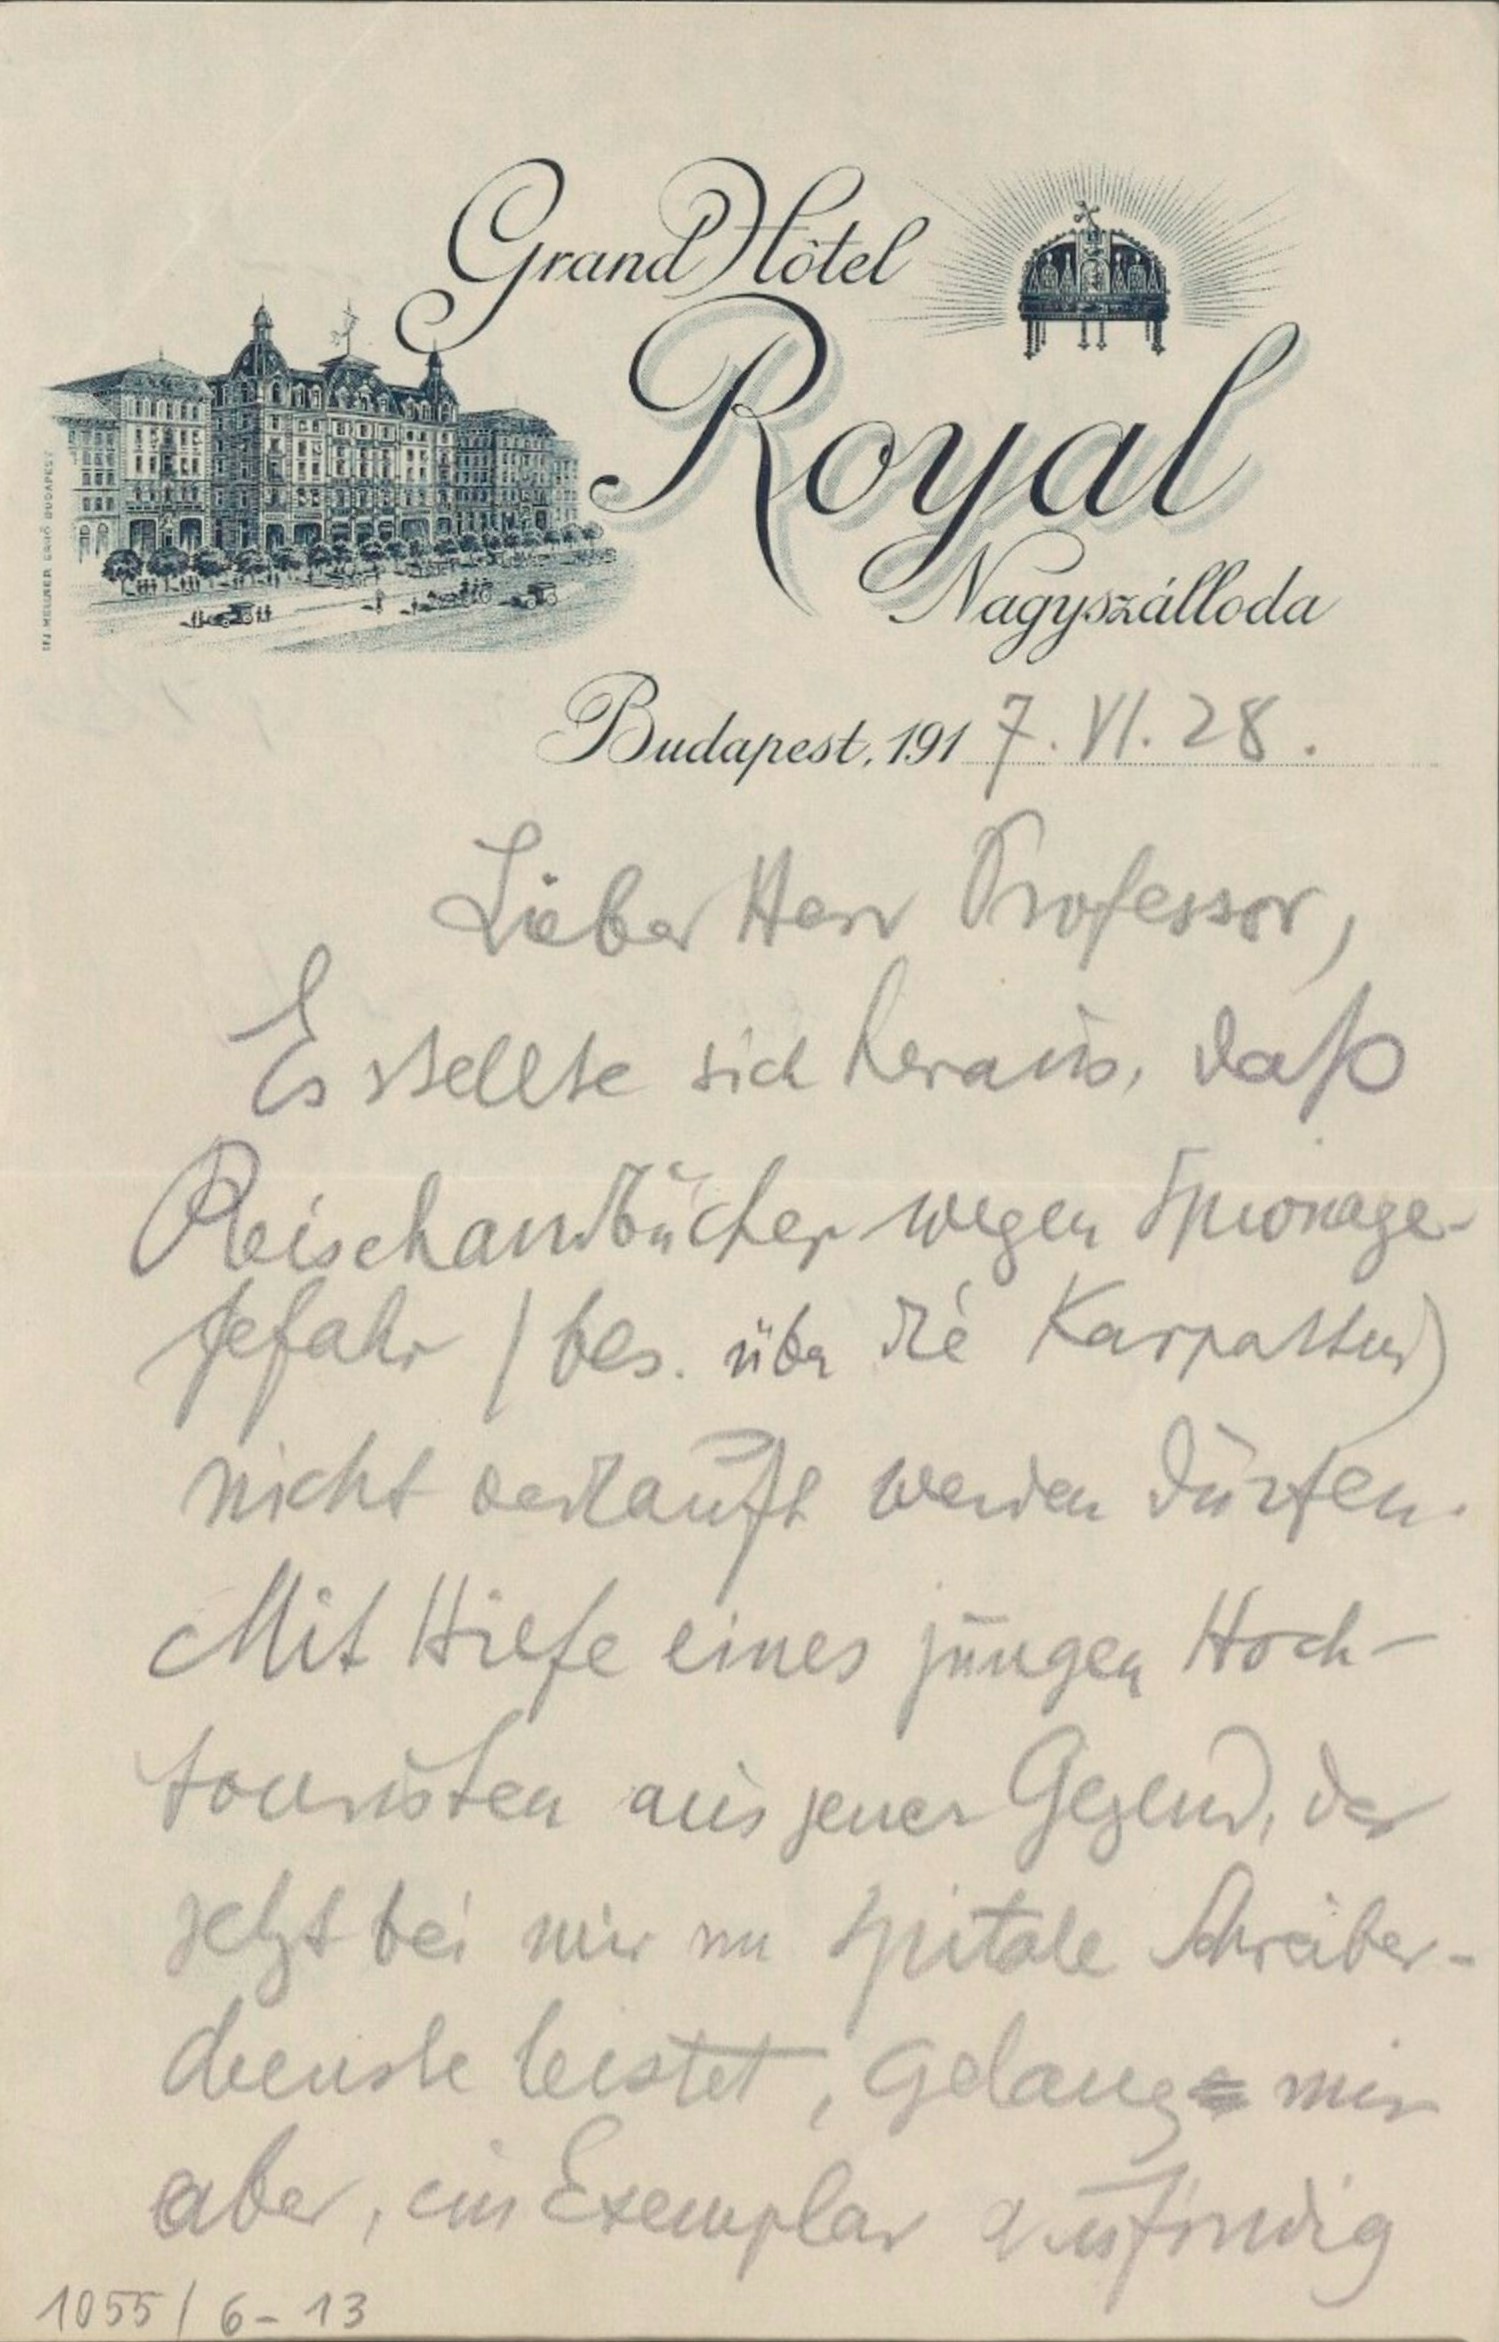 Grand Hôtel
Royal
Nagyszálloda
IFJ. MELLNER ERNŐ BUDAPEST
Budapest, 1917. VI. 28.
Lieber Herr Professor,
Es stellte sich heraus, daß
Reisehandbücher wegen Spionage-
gefahr (bes. über die Karpathen)
nicht verkauft werden dürfen.
Mit Hilfe eines jungen Hoch-
touristen aus jener Gegend, der
jetzt bei mir im Spitale Schreiber-
dienste leistet, gelang mir
aber, ein Exemplar ausfindig
1055/6-13